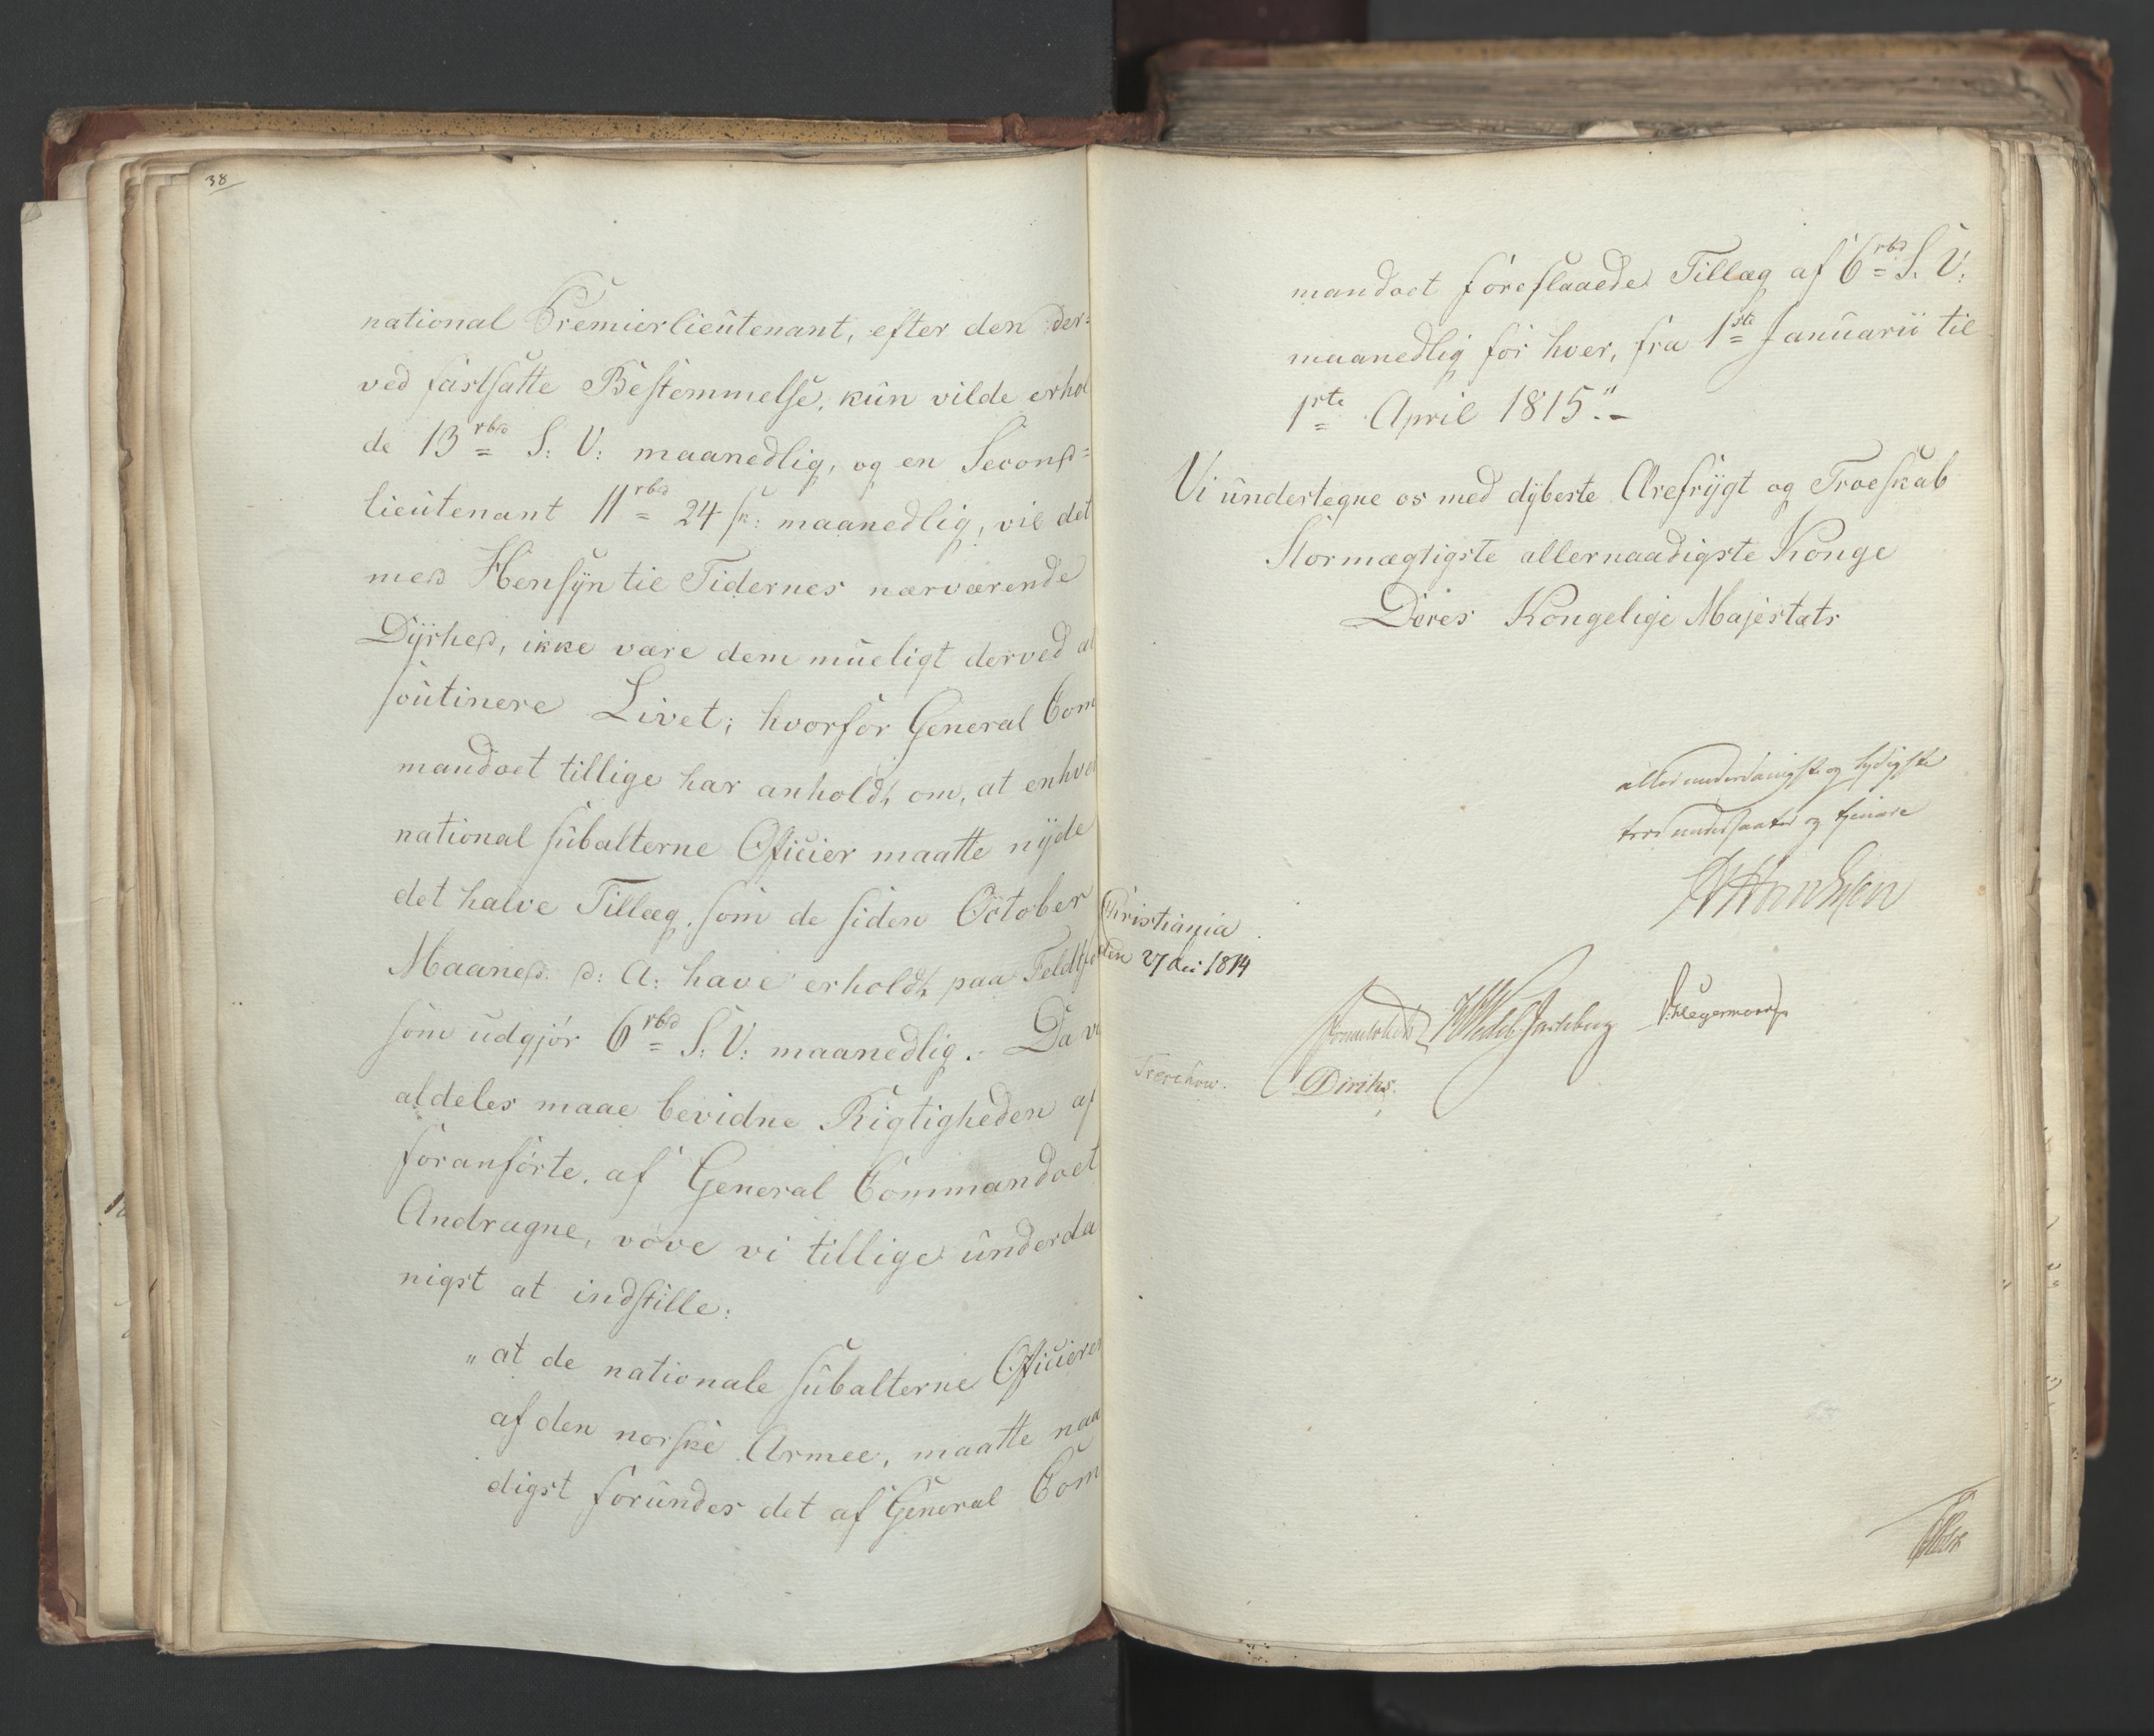 38
national Premierlieutenant, efter den der=
ved fastsatte Bestemmelse, kun vilde erhol
de 13 rbd S: V: maanedlig, og en Second=
lieutenant 11 rbd 24 sk: maanedlig, vil det
med Hensyn til Tidernes nærværende
Dyrhed, ikke være dem mueligt derved at
soutinere Livet; hvorfor General Com
mandoet tillige har anholdt om, at enhver
national subalterne Officier maatte nyde
det halve Tillæg, som de siden October
Maaned d: A: have erholdt paa Feldtfod
som udgjør 6 rbd S: V: maanedlig. Da vi
aldeles maae bevidne Rigtigheden af
foranførte, af General Commandoet
Andragne, vove vi tillige underda
nigst at indstille:
„at de nationale subalterne Officierer
af den norske Armee, maatte naa
digst forundes det af General Com
mandoet foreslaaede Tillæg af 6 rbd S. V.
maanedlig for hver, fra 1ste Januarii til
1ste April 1815."
Vi undertegne os med dybeste Ærefrygt og Troeskab
Stormægtigste allernaadigste Konge
Deres Kongelige Majestæts
allerunderdanigste og lydigste
troe undersaatter og tjenere
Christiania
den 27 dec 1814
Sommerhielm Wedel Jarlsberg Hegermann
Treschow. Diriks.